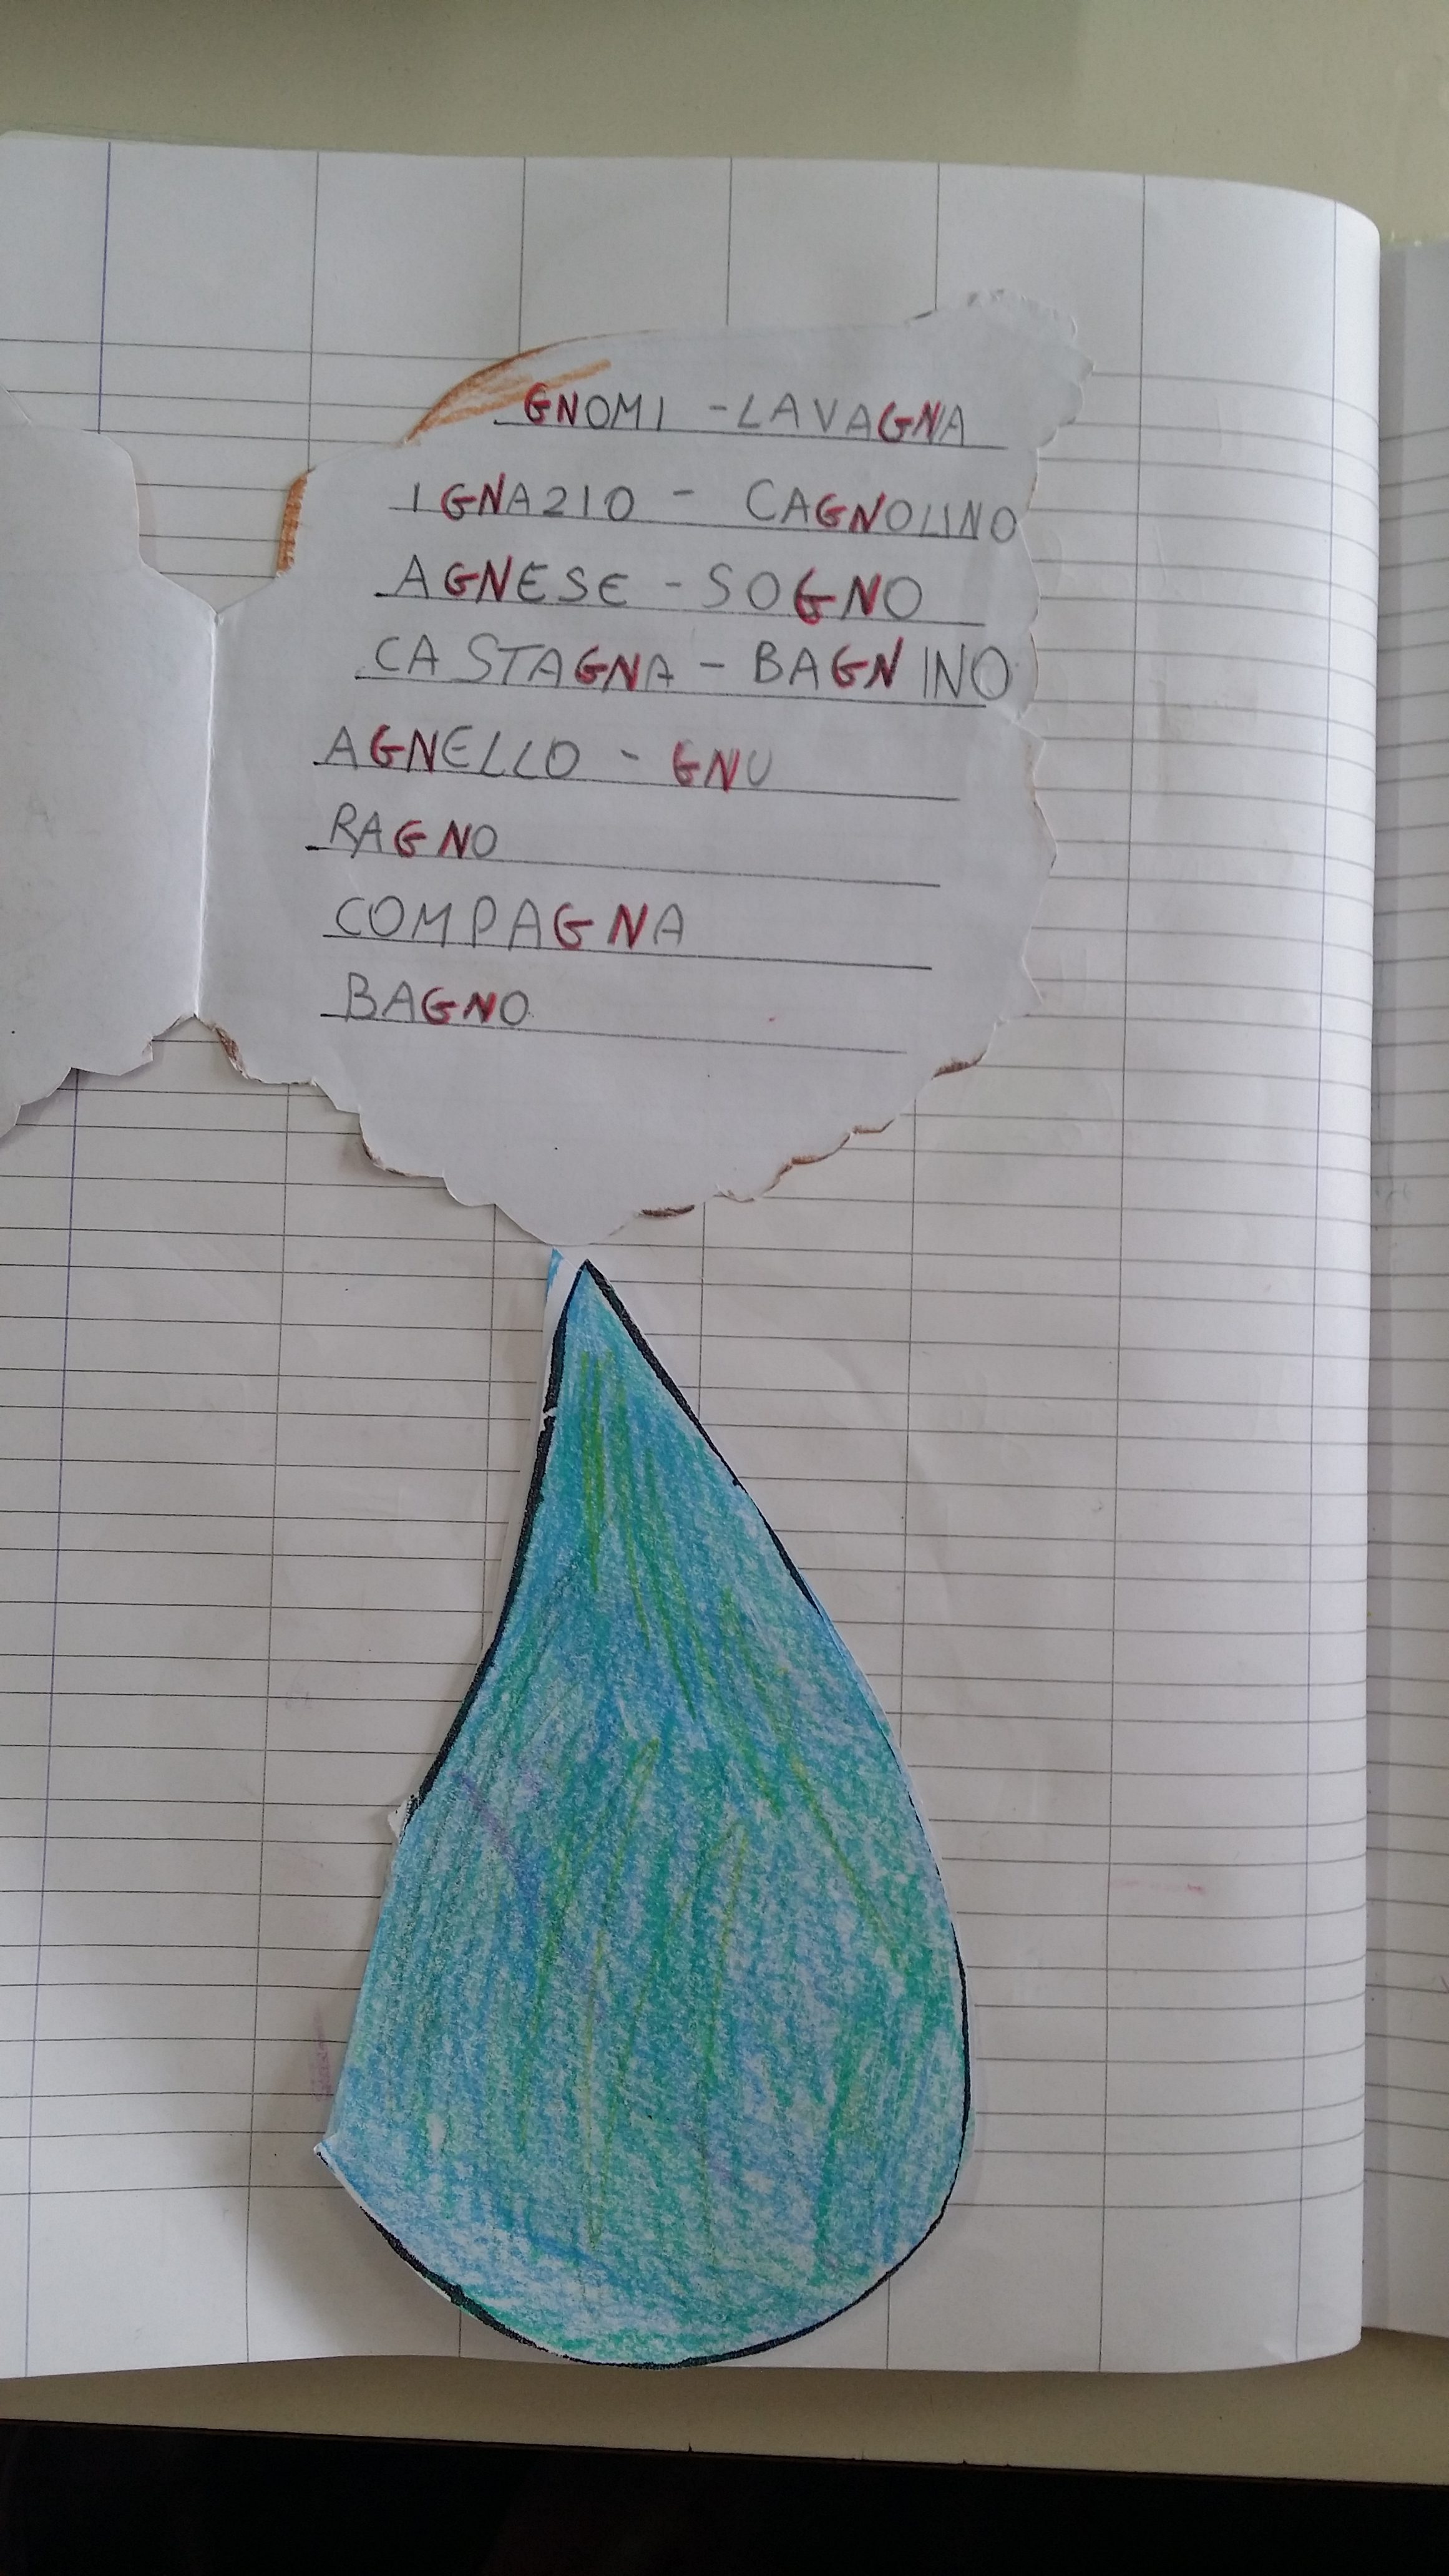 GNOMI - LAVAGNA
IGNAZIO - CAGNOLINO
AGNESE - SOGNO
CASTAGNA - BAGNINO
AGNELLO - GNU
RAGNO
COMPAGNA
BAGNO